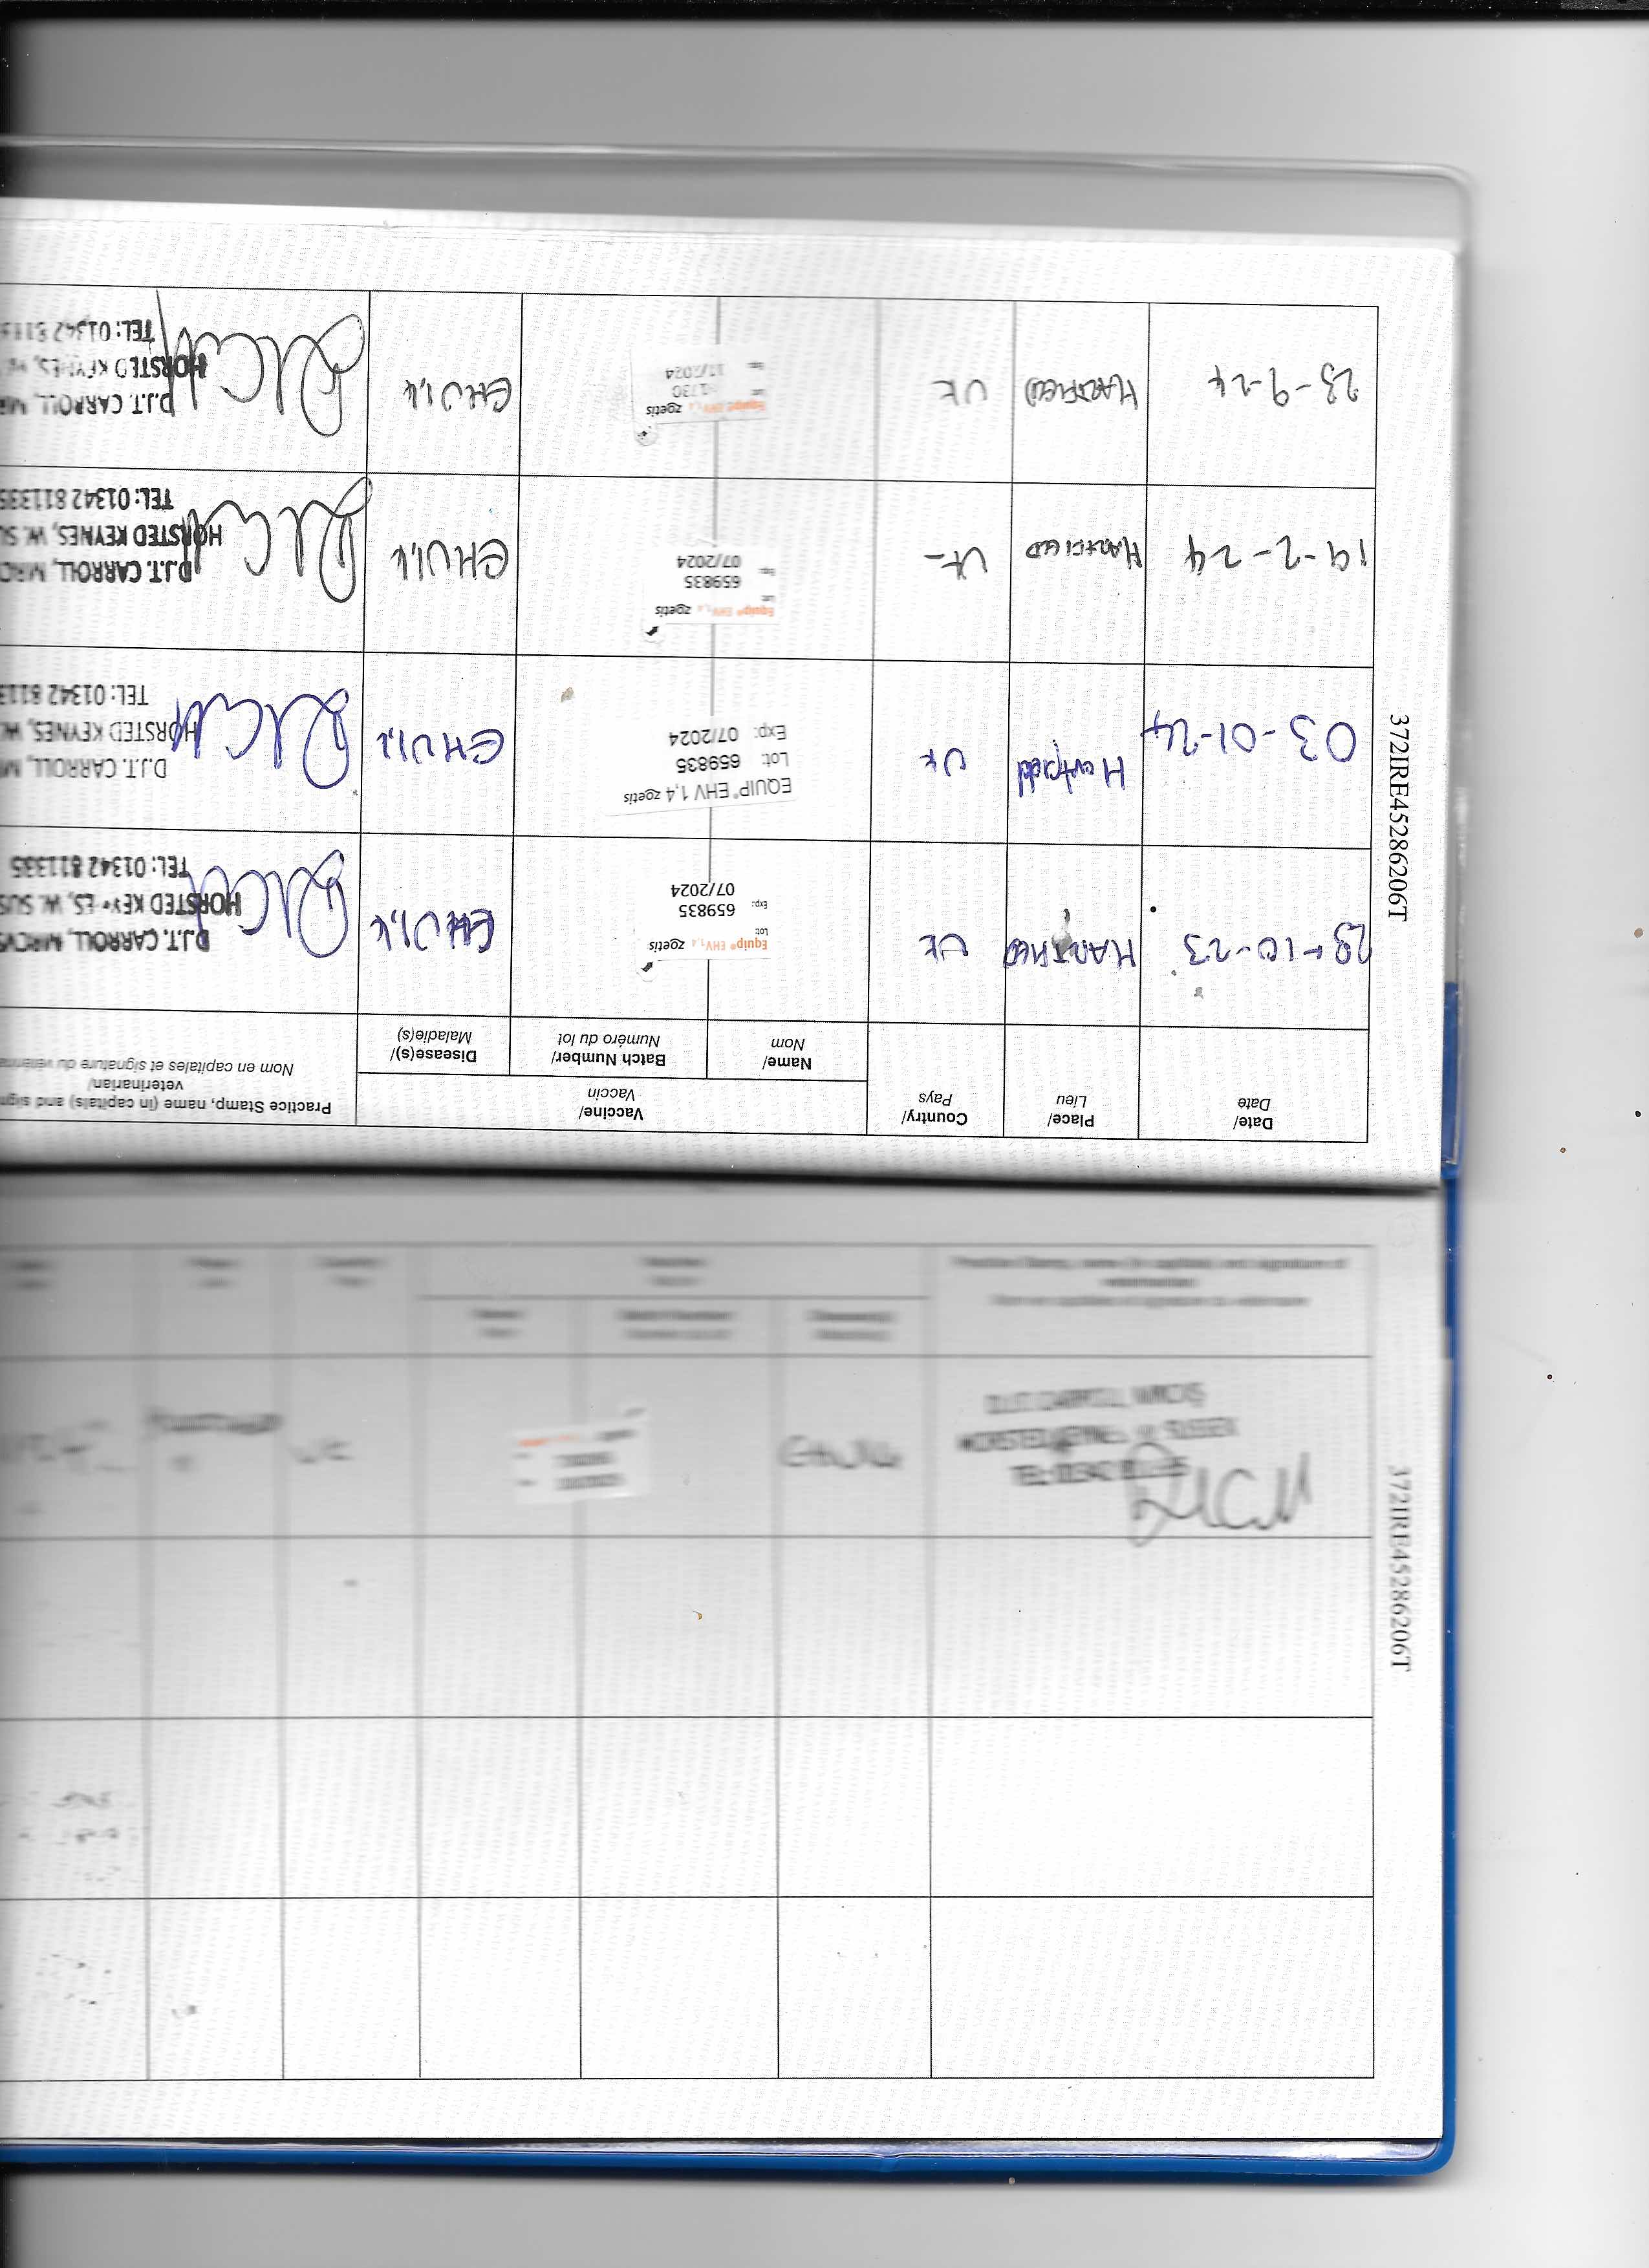 Date/
Date
Place/
Lieu
Country/
Pays
Vaccine/
Vaccin
Name/
Nom
Batch Number/
Numéro du lot
Disease(s)/
Maladie(s)
Practice Stamp, name (in capitals) and sign
veterinarian/
Nom en capitales et signature du vétérina
28-10-23
UK
Equip® EHV 1,4 zoetis
Lot: 659835
Exp: 07/2024
EHV1,4
D.J.T. CARROLL, MRCVS
HORSTED KEYNES, W. SUS
TEL: 01342 811335
03-01-24
Hartfield
UK
EQUIP® EHV 1,4 zoetis
Lot: 659835
Exp: 07/2024
EHV1,4
D.J.T. CARROLL, M
HORSTED KEYNES, W.
TEL: 01342 8113
19-2-24
HARTFIELD
UK
Equip® EHV 1,4 zoetis
Lot: 659835
Exp: 07/2024
EHV1,4
D.J.T. CARROLL, MRC
HORSTED KEYNES, W. SU
TEL: 01342 811335
23-9-24
HARTFIELD
UK
Equip® EHV 1,4 zoetis
Lot:
Exp: 11/2024
EHV1,4
D.J.T. CARROLL, MR
HORSTED KEYNES, W.
TEL: 01342 811
372IRE45286206T
UK
EHV1,4
D.J.T. CARROLL, MRCVS
HORSTED KEYNES, W. SUSSEX
TEL: 01342
372IRE45286206T